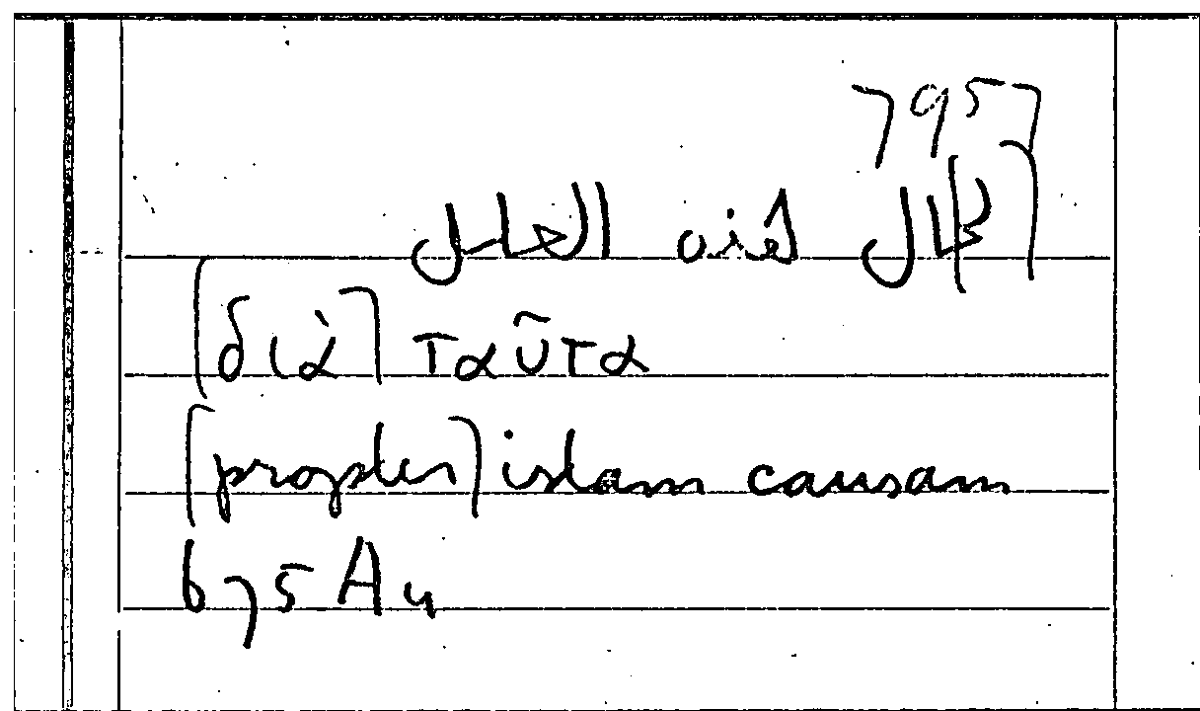 7957
[لحال] هذه العلل
[διὰ] ταῦτα
[propter] istam causam
675 A 4